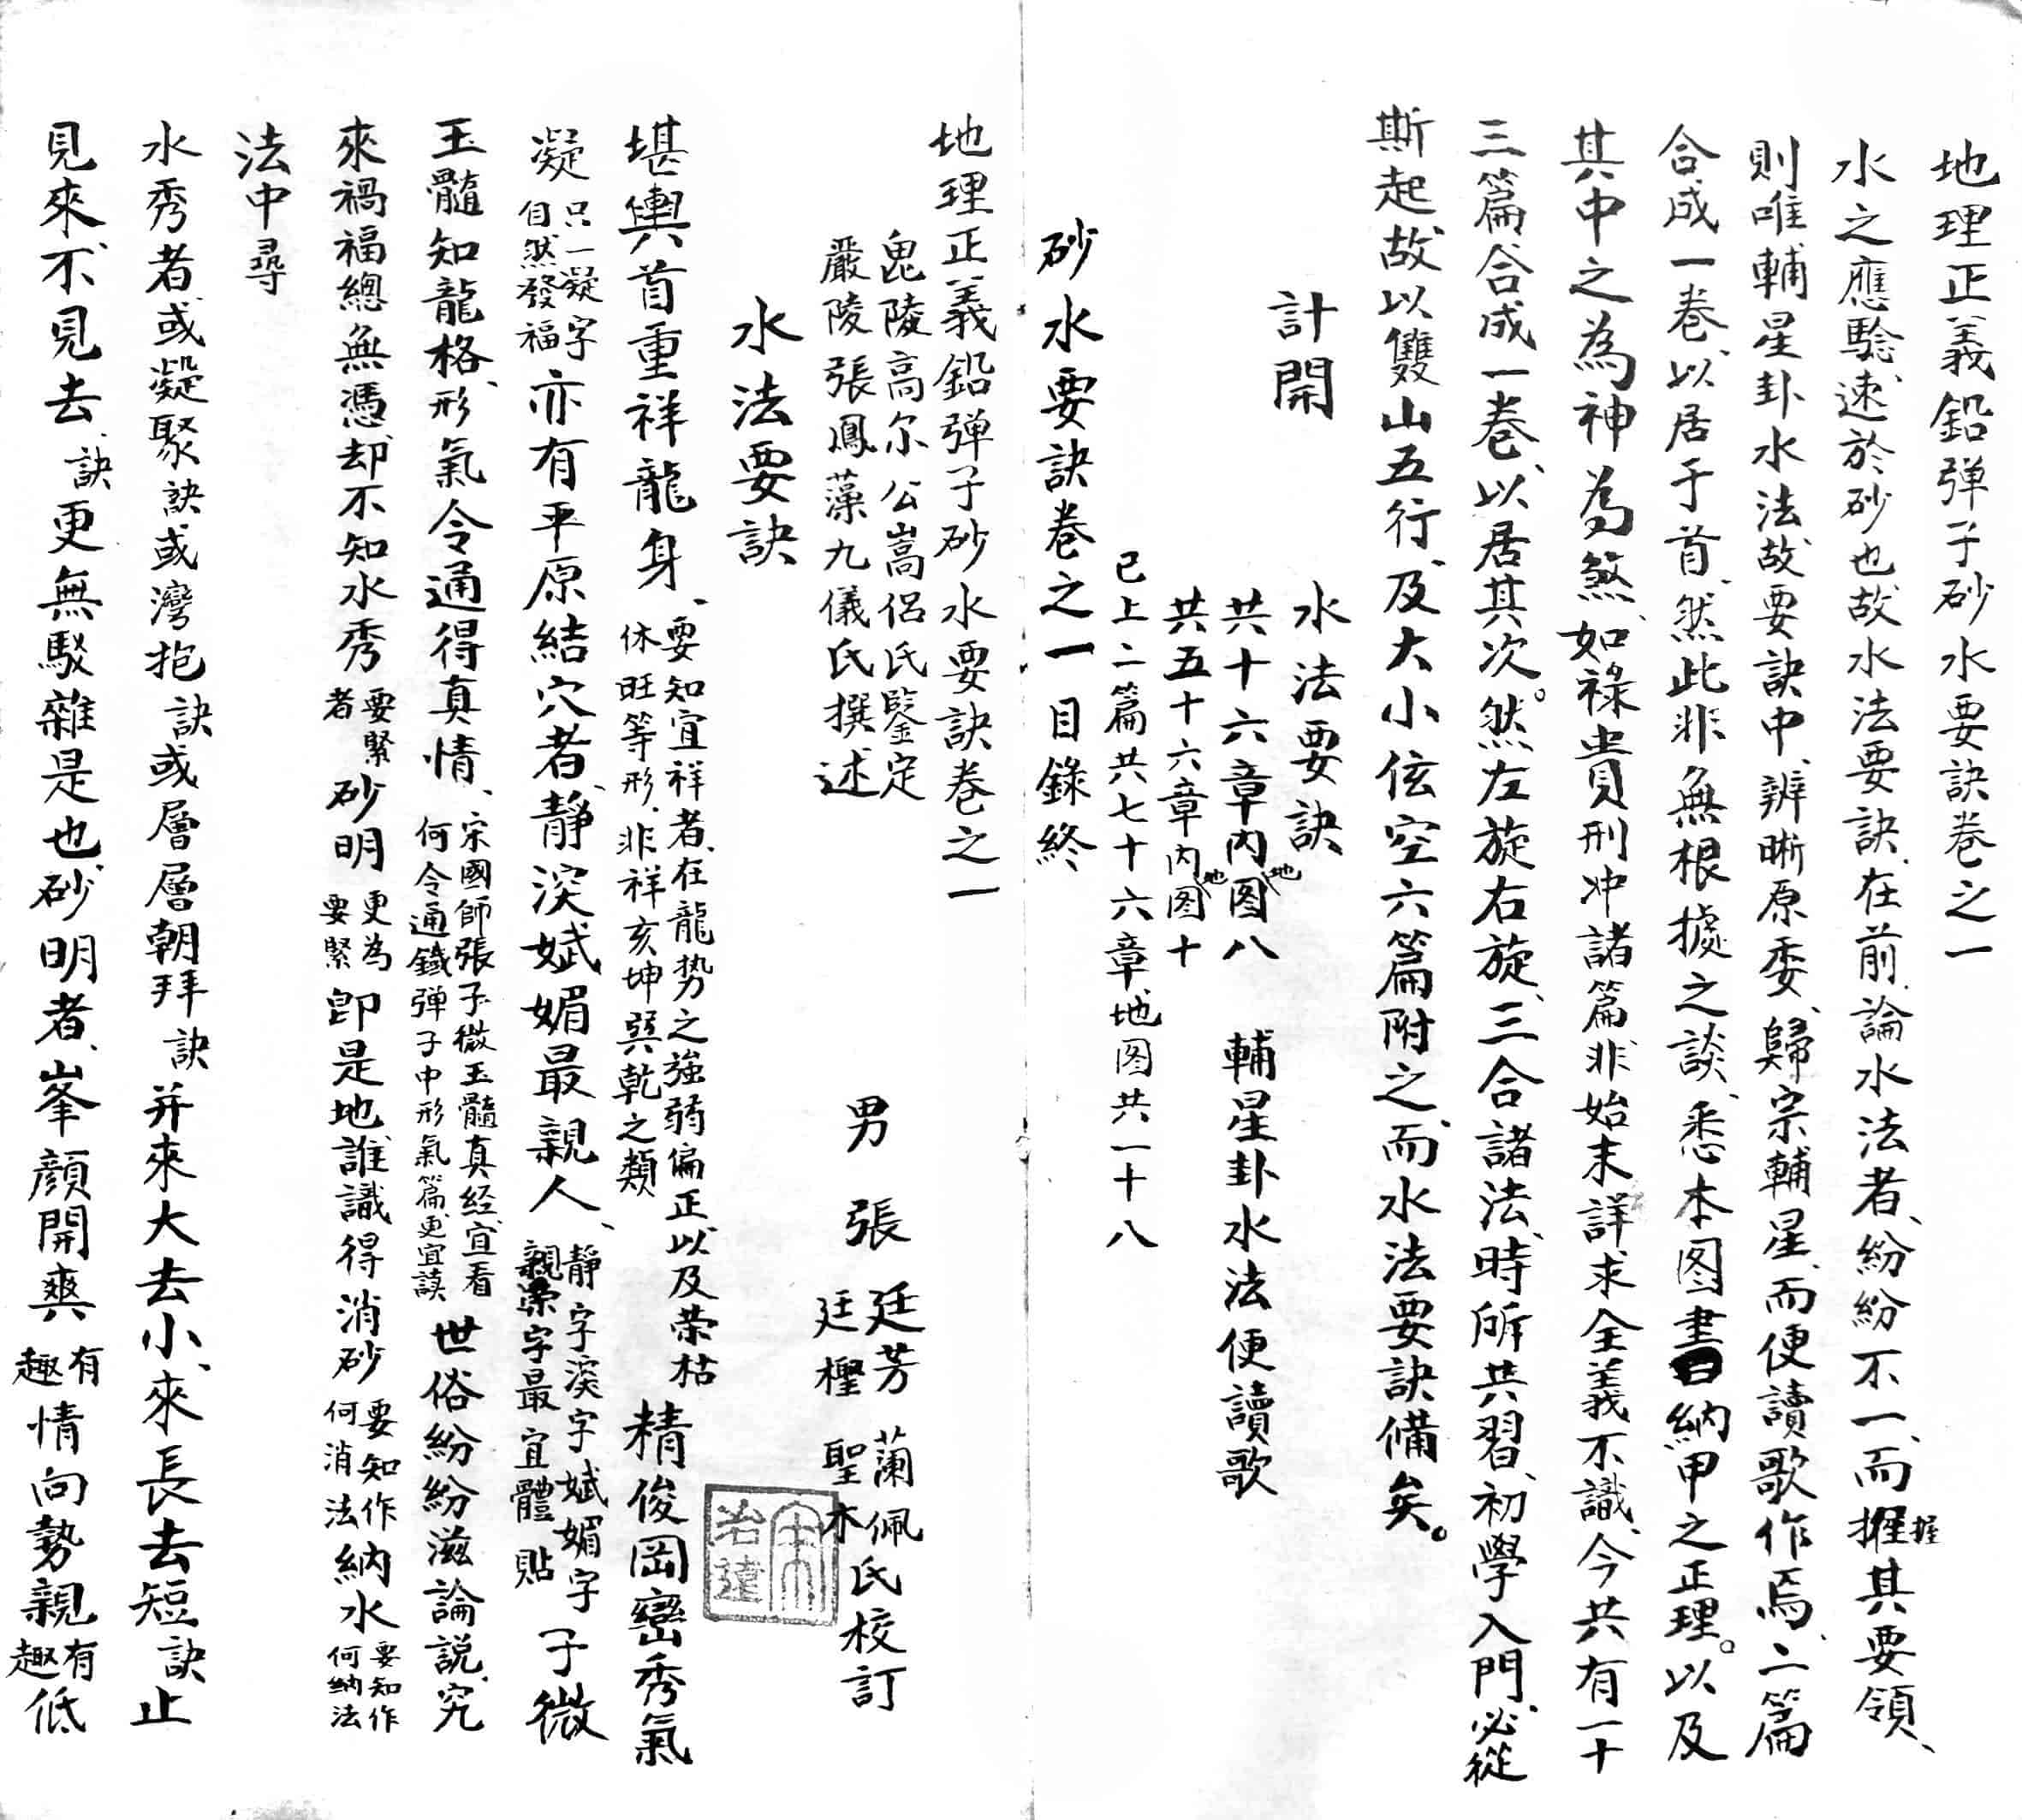 地理正義鉛弹子砂水要訣卷之一
水之應騐、速於砂也故水法要訣、在前、論水法者、紛紛不一、而握其要領、
握
則唯輔星卦水法、故要訣中、辨晰原委、歸宗輔星、而便讀歌作焉、二篇
合成一卷、以居于首、然此非無根據之談、悉本图書納甲之正理。以及
其中之為神為煞、如祿貴刑冲諸篇、非始末詳求全義不識、今共有一十
三篇合成一卷、以居其次。然左旋右旋、三合諸法、時所共習、初學入門、必從
斯起、故以雙山五行、及大小伭空六篇附之、而水法要訣備矣。
計開
水法要訣
共十六章内地图八 輔星卦水法便讀歌
共五十六章内地图十
已上二篇共七十六章、地图共一十八
砂水要訣卷之一目錄終
地理正義鉛弹子砂水要訣卷之一
毘陵高尔公嵩侣氏鑒定
嚴陵張鳳藻九儀氏撰述
男 張 廷芳 蘭佩
廷樫 聖木
氏校訂
水法要訣
堪輿首重祥龍身、要知宜祥者、在龍势之強弱偏正、以及荣枯
休旺等形、非祥亥坤巽乾之類 精俊岡巒秀氣
凝 只一凝字
自然發福 亦有平原結穴者、静深娬媚最親人、静字深字娬媚字
親字最宜體貼 子微
玉髓知龍格、形氣令通得真情、宋國師張子微玉髓真经、宜看
何令通鐡弹子中形氣篇、更宜讀 世俗紛紛滋論説、究
來禍福總無憑、却不知水秀 要緊
者 砂明 更為
要緊 卽是地、誰識得消砂 要知作
何消法 納水 要知作
何納法
法中尋
水秀者、或凝聚 訣 或灣抱 訣 或層層朝拜 訣 并來大去小、來長去短 訣 止
見來、不見去、訣 更無駁雜是也、砂明者、峯顔開爽 有
趣 情向勢親 有
趣 低